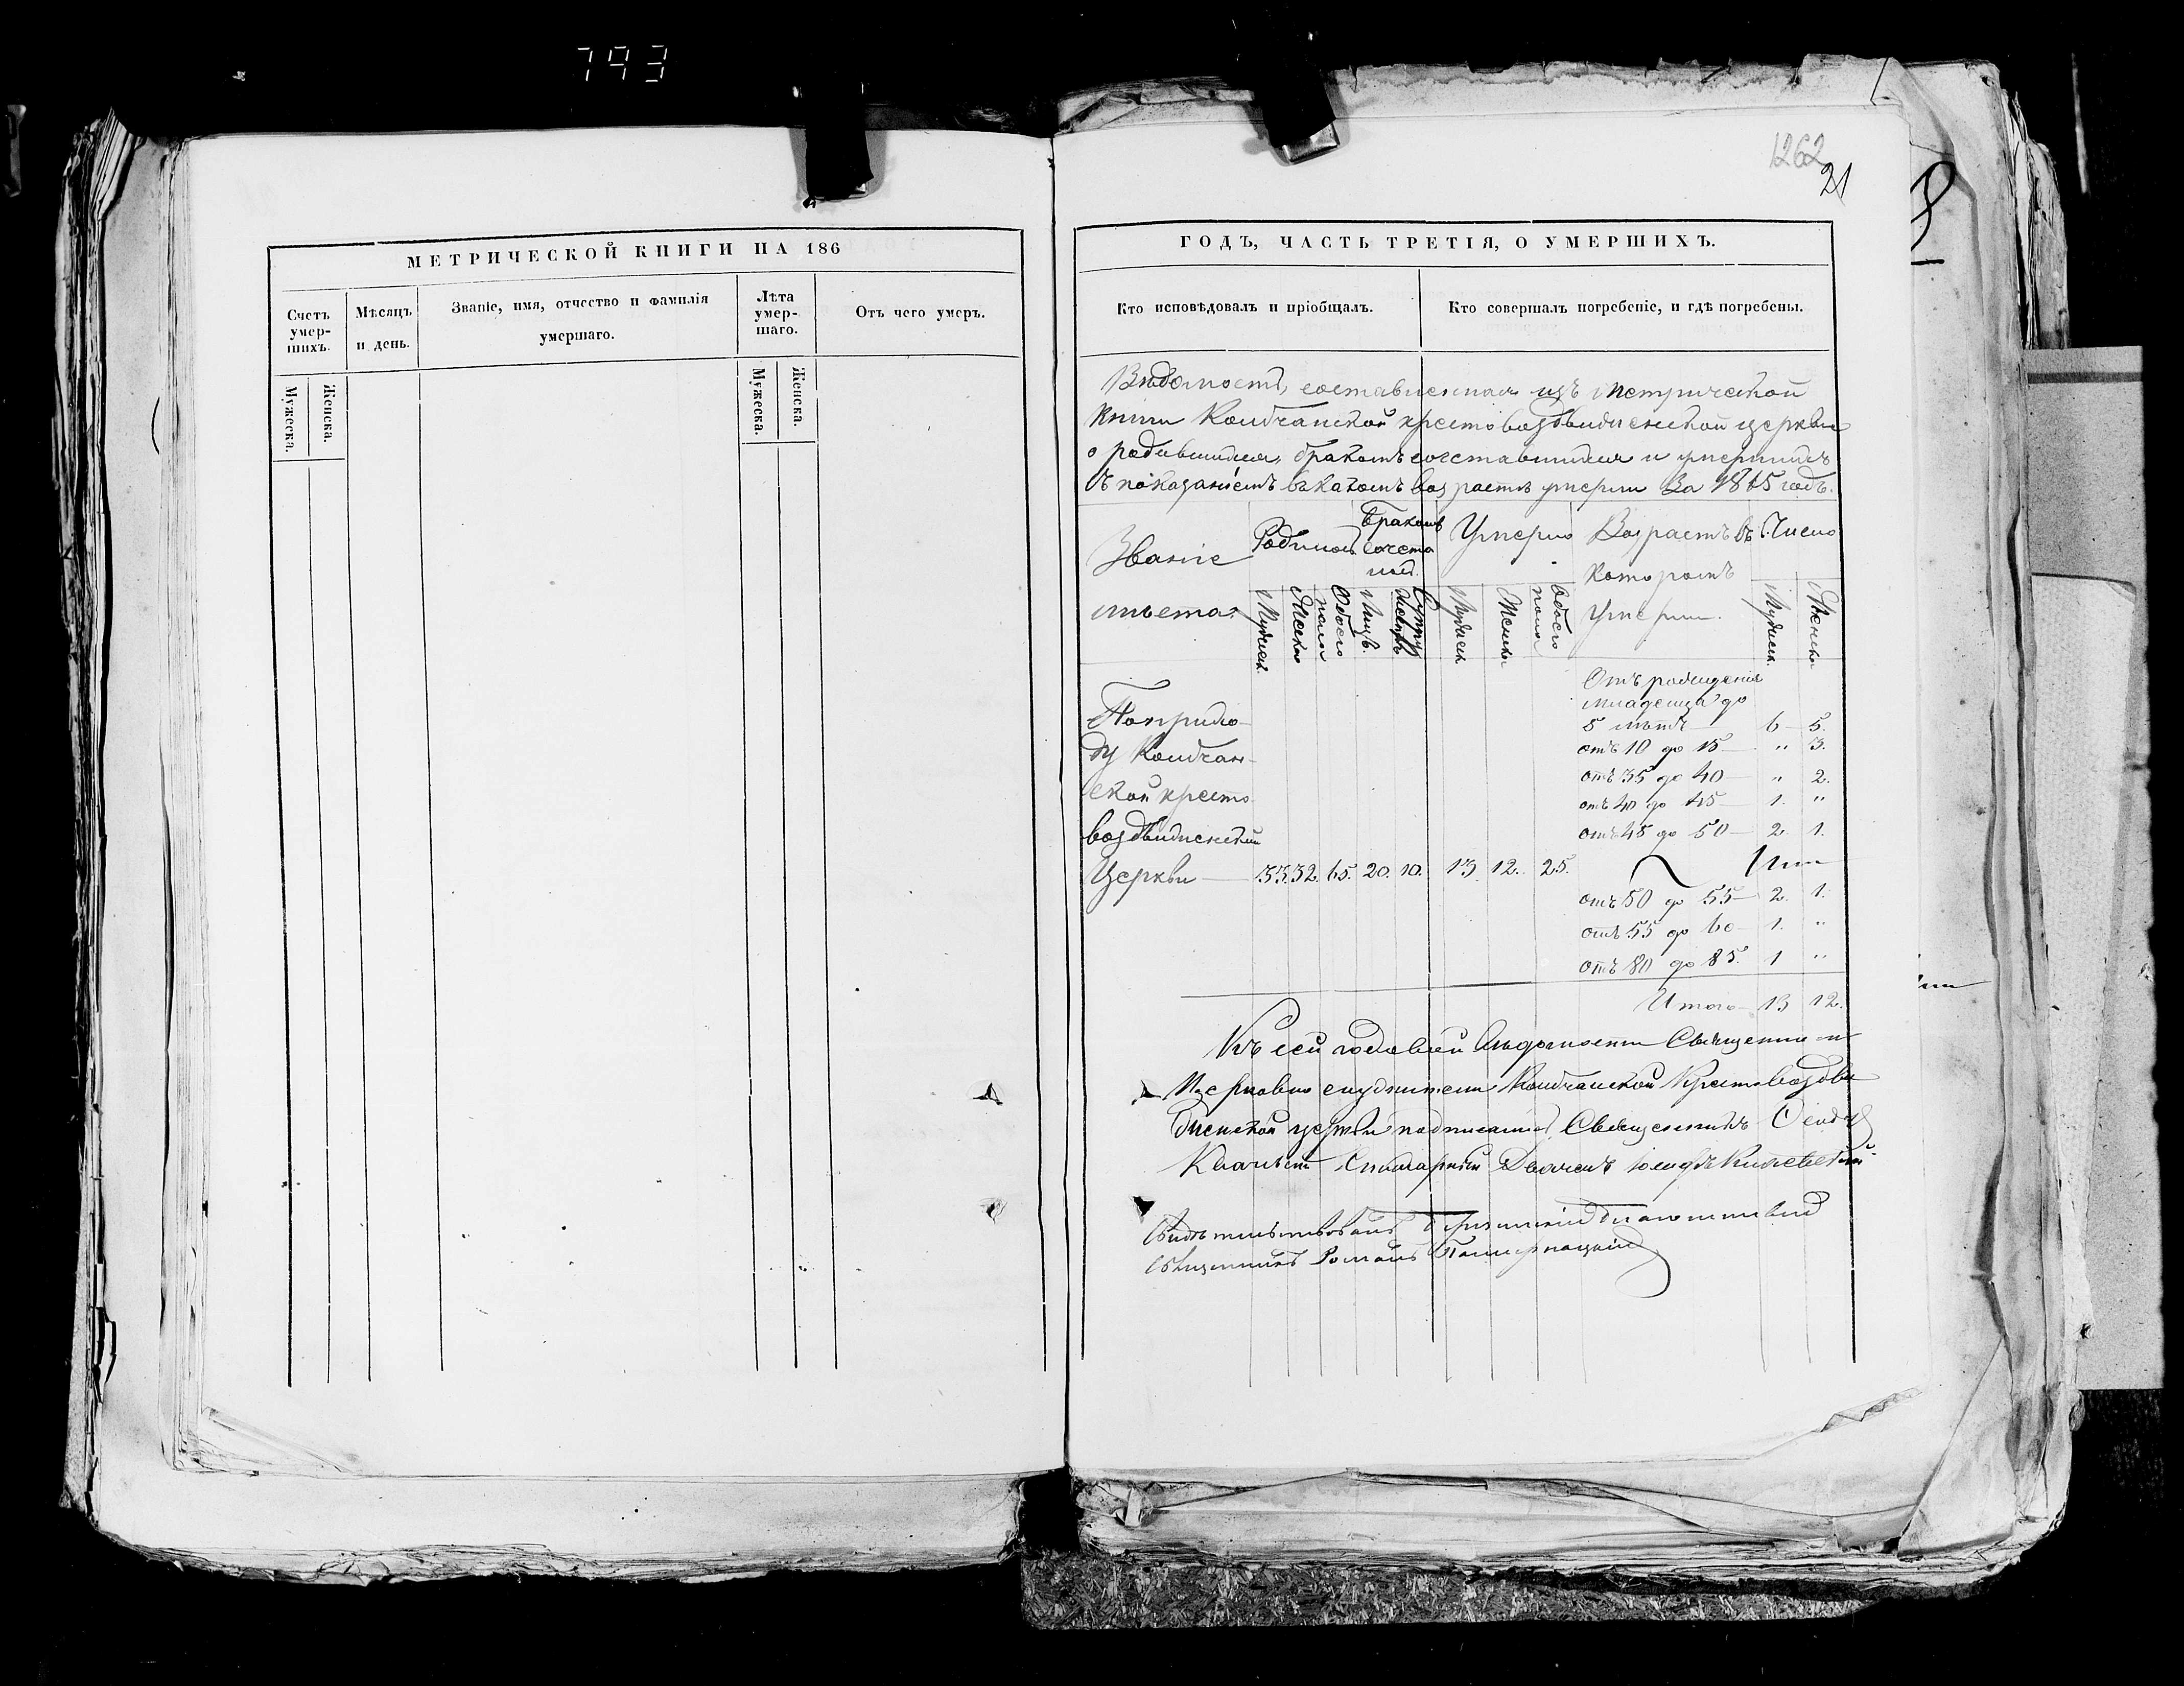 793
1262
21
МЕТРИЧЕСКОЙ КНИГИ НА 186
Счетъ умер-шихъ.
Мѣсяцъ и день.
Званіе, имя, отчество и фамилія умершаго.
Лѣта умер-шаго.
Отъ чего умеръ.
Мужеска.
Женска.
Мужеска.
Женска.
ГОДЪ, ЧАСТЬ ТРЕТІЯ, О УМЕРШИХЪ.
Кто исповѣдовалъ и пріобщалъ.
Кто совершалъ погребеніе, и гдѣ погребены.
Вѣдомость, составленная изъ метрической
книги крестовоздвиженской церкви
о родившихся, бракомъ сочетавшихся и умершихъ
съ показаніемъ въ какомъ возрастѣ умерли за 1865 годъ.
Званіе
мѣста
Родилось
Бракомъ сочета
Умерло
Возрастъ въ
которомъ
умерли.
Число
Мужеск.
Женска
Обоего пола
Лицъ.
Мужеск
Женска
Обоего пола
Мужеск.
Женска
По прихо-
ду
ской кресто
воздвиженской
Церкви — 33 32. 65. 20. 10. 13 12. 25.
Отъ рожденія
младенца до
5 лѣтъ — 6 — 5.
отъ 10 до 15 — " 3.
отъ 35 до 40 — " 2.
отъ 40 до 45 — 1. "
отъ 45 до 50 — 2. 1.
отъ 50 до 55 — 2. 1.
отъ 55 до 60 — 1. "
отъ 80 до 85. 1 "
Итого — 13 12.
Къ сей годовой вѣдомости Священно и
Церковно служители Крестовоздви
женской церкви подписались Священникъ
Дьячекъ
Свидѣтельствовалъ благочинный
Священникъ Романъ